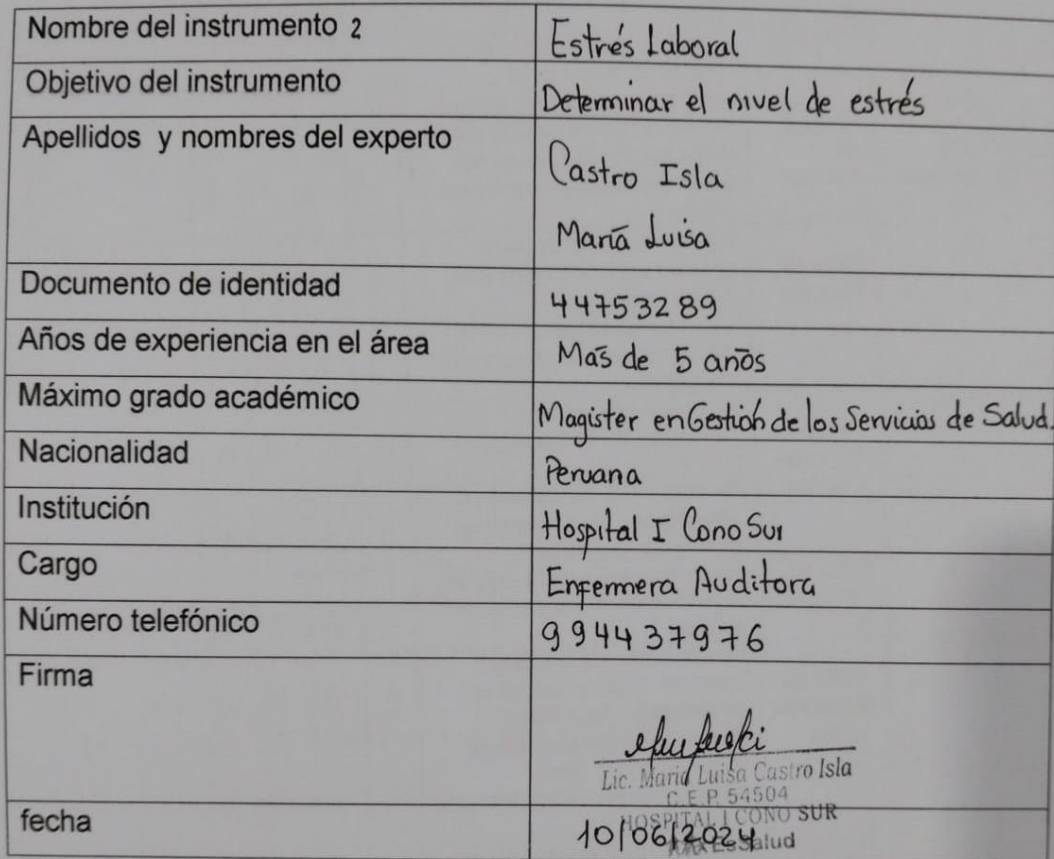 Nombre del instrumento 2
Estrés Laboral
Objetivo del instrumento
Determinar el nivel de estrés
Apellidos y nombres del experto
Castro Isla
María Luisa
Documento de identidad
44753289
Años de experiencia en el área
Más de 5 años
Máximo grado académico
Magister en Gestión de los Servicios de Salud.
Nacionalidad
Peruana
Institución
Hospital I Cono Sur
Cargo
Enfermera Auditora
Número telefónico
994437976
Firma
Lic. María Luisa Castro Isla
C.E.P. 54504
HOSPITAL I CONO SUR
EsSalud
fecha
10/06/2024